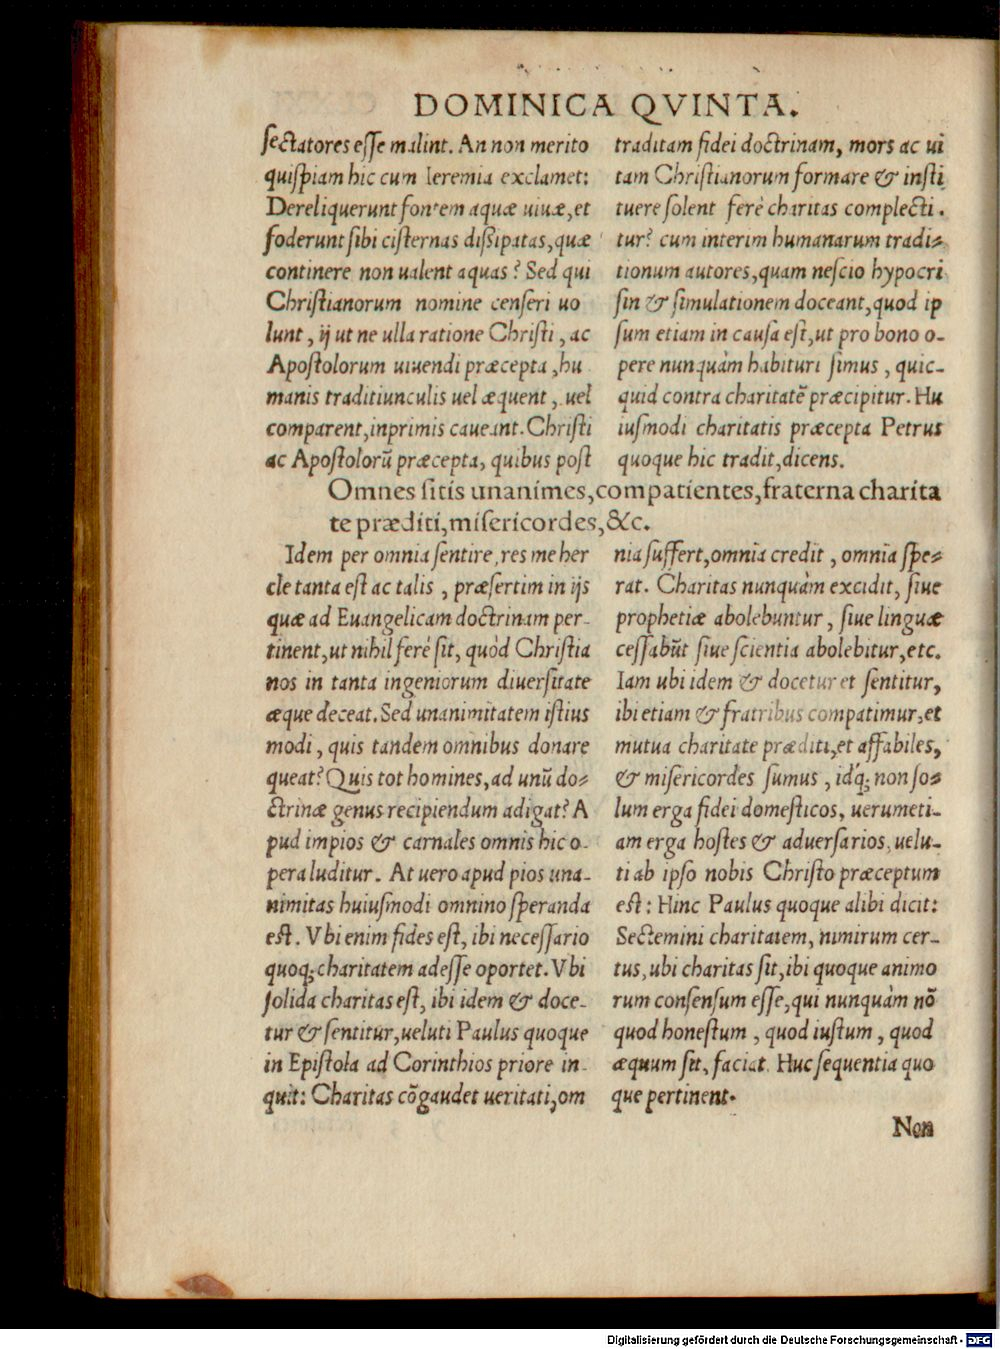 DOMINICA QVINTA.
sectatores esse malint. An non merito
quispiam hic cum Ieremia exclamet:
Dereliquerunt fontem aquæ uiuæ, et
foderunt sibi cisternas dissipatas, quæ
continere non ualent aquas? Sed qui
Christianorum nomine censeri uo
lunt, ij ut ne ulla ratione Christi, ac
Apostolorum uiuendi præcepta, hu
manis traditiunculis uel æquent, uel
comparent, inprimis caueant. Christi
ac Apostolorũ præcepta, quibus post
traditam fidei doctrinam, mors ac ui
tam Christianorum formare & insti
tuere solent ferè charitas complecti.
tur? cum interim humanarum tradi-
tionum autores, quam nescio hypocri
sin & simulationem doceant, quod ip
sum etiam in causa est, ut pro bono o-
pere nunquàm habituri simus, quic-
quid contra charitatẽ præcipitur. Hu
iusmodi charitatis præcepta Petrus
quoque hic tradit, dicens.
Omnes sitis unanimes, compatientes, fraterna charita
te præditi, misericordes, &c.
Idem per omnia sentire, res me her
cle tanta est ac talis, præsertim in ijs
quæ ad Euangelicam doctrinam per-
tinent, ut nihil ferè sit, quòd Christia
nos in tanta ingeniorum diuersitate
æque deceat. Sed unanimitatem istius
modi, quis tandem omnibus donare
queat? Quis tot homines, ad unũ do-
ctrinæ genus recipiendum adigat? A
pud impios & carnales omnis hic o-
pera luditur. At uero apud pios una-
nimitas huiusmodi omnino speranda
est. Vbi enim fides est, ibi necessario
quoq; charitatem adesse oportet. Vbi
solida charitas est, ibi idem & doce-
tur & sentitur, ueluti Paulus quoque
in Epistola ad Corinthios priore in-
quit: Charitas cõgaudet ueritati, om
nia suffert, omnia credit, omnia spe-
rat. Charitas nunquàm excidit, siue
prophetiæ abolebuntur, siue linguæ
cessabũt siue scientia abolebitur, etc.
Iam ubi idem & docetur et sentitur,
ibi etiam & fratribus compatimur, et
mutua charitate præditi, et affabiles,
& misericordes sumus, idq́; non so-
lum erga fidei domesticos, uerumeti-
am erga hostes & aduersarios, uelu-
ti ab ipso nobis Christo præceptum
est: Hinc Paulus quoque alibi dicit:
Sectemini charitatem, nimirum cer-
tus, ubi charitas sit, ibi quoque animo
rum consensum esse, qui nunquàm nõ
quod honestum, quod iustum, quod
æquum sit, faciat. Huc sequentia quo
que pertinent.
Non
Digitalisierung gefördert durch die Deutsche Forschungsgemeinschaft - DFG